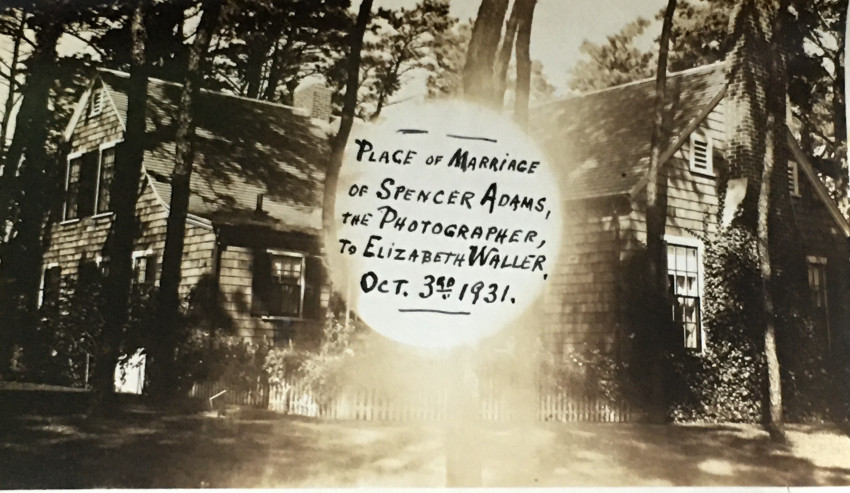 PLACE OF MARRIAGE
OF SPENCER ADAMS,
THE PHOTOGRAPHER,
TO ELIZABETH WALLER,
OCT. 3RD 1931.